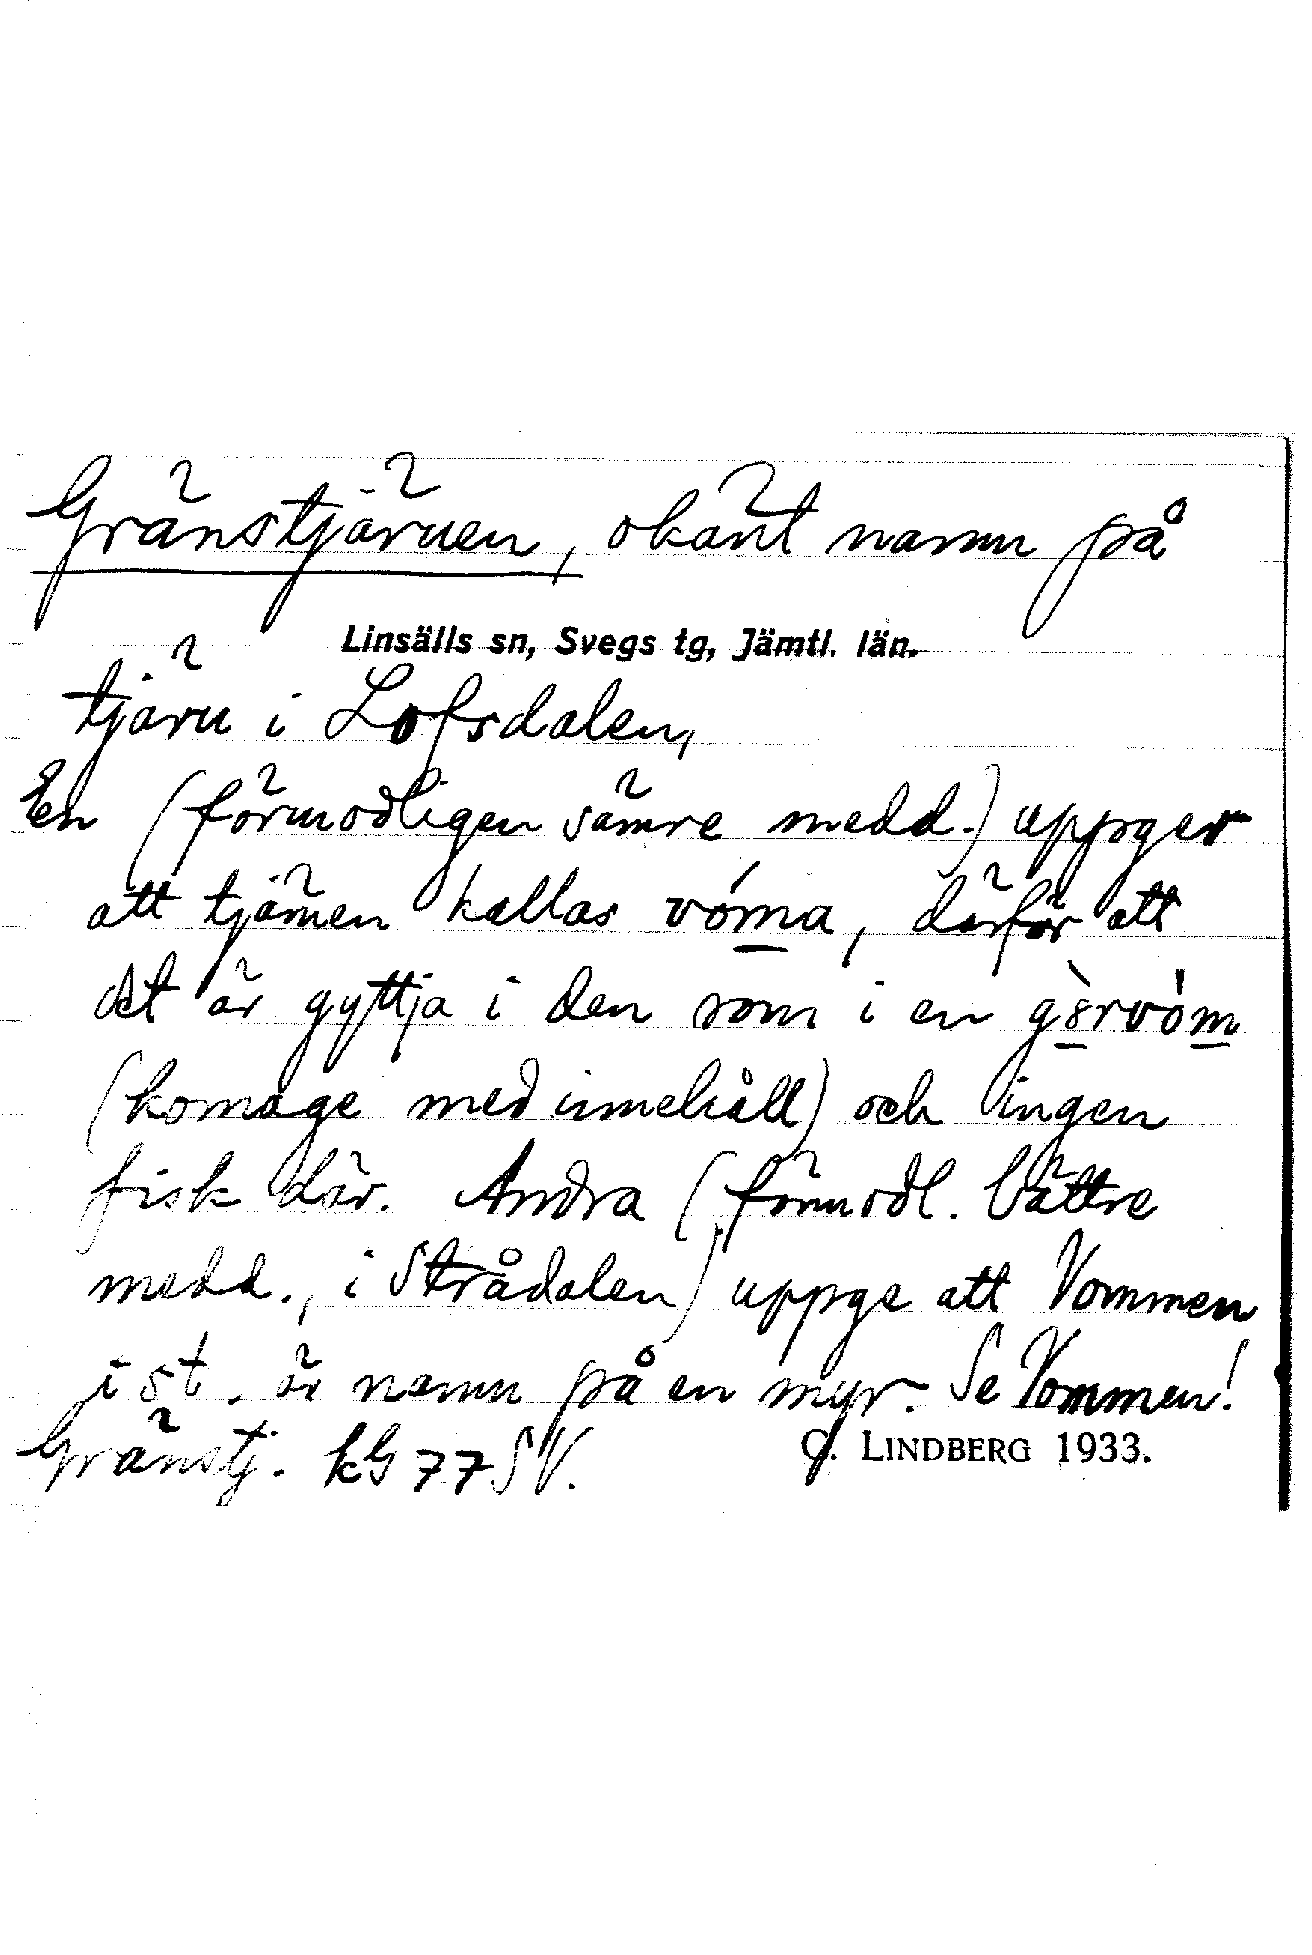 Gränstjärnen, okänt namn på
Linsälls sn, Svegs tg, Jämtl. län.
tjärn i Lofsdalen,
En (förmodligen sämre medd.) uppger
att tjärnen kallas vóma, därför att
det är gyttja i den som i en gòrvóm
(komage med innehåll) och ingen
fisk där. Andra (förmodl. bättre
medd., i Strådalen) uppge att Vommen
i st. är namn på en myr. Se Vommen!
Gränstj. kG 77 SV.
C. LINDBERG 1933.